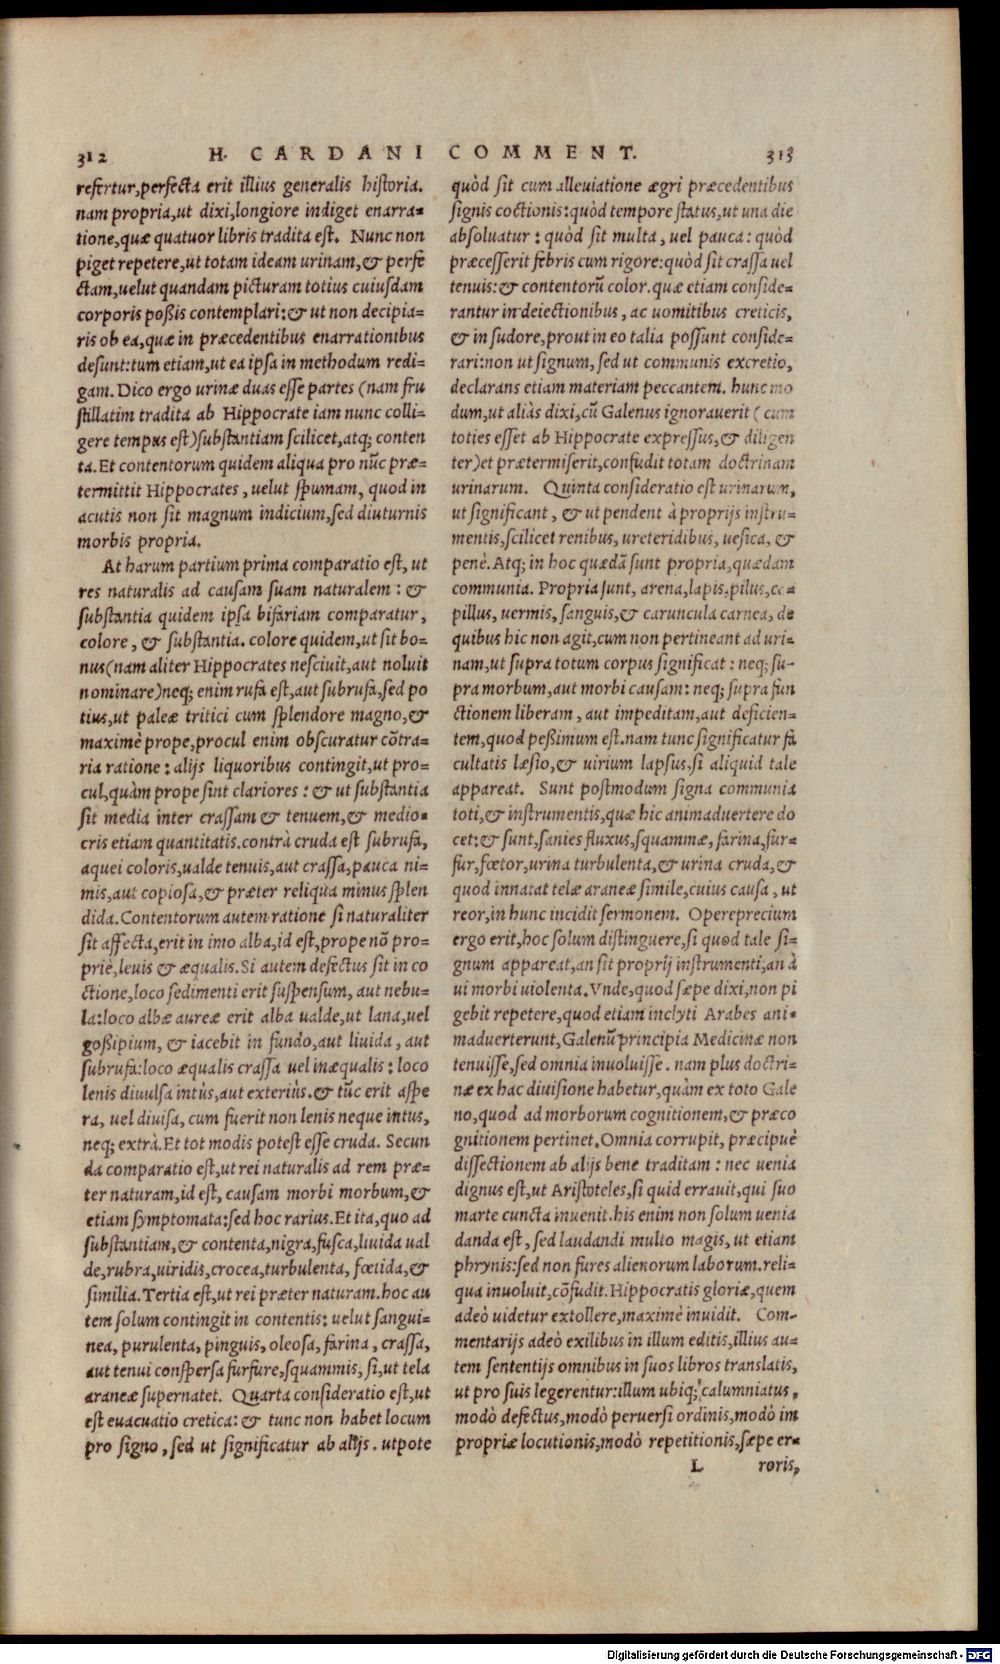 312 H. CARDANI COMMENT. 313
refertur,perfecta erit illius generalis historia.
nam propria,ut dixi,longiore indiget enarra=
tione,quæ quatuor libris tradita est. Nunc non
piget repetere,ut totam ideam urinam,& perfe
ctam,uelut quandam picturam totius cuiusdam
corporis poßis contemplari:& ut non decipia=
ris ob ea,quæ in præcedentibus enarrationibus
desunt:tum etiam,ut ea ipsa in methodum redi=
gam. Dico ergo urinæ duas esse partes (nam fru
stillatim tradita ab Hippocrate iam nunc colli=
gere tempus est)substantiam scilicet,atq; conten
ta. Et contentorum quidem aliqua pro nūc præ=
termittit Hippocrates, uelut spumam, quod in
acutis non sit magnum indicium,sed diuturnis
morbis propria.
At harum partium prima comparatio est, ut
res naturalis ad causam suam naturalem: &
substantia quidem ipsa bifariam comparatur,
colore, & substantia. colore quidem,ut sit bo=
nus(nam aliter Hippocrates nesciuit,aut noluit
nominare)neq; enim rufa est,aut subrufa,sed po
tius,ut paleæ tritici cum splendore magno,&
maximè prope,procul enim obscuratur cōtra=
ria ratione: alijs liquoribus contingit,ut pro=
cul,quàm prope sint clariores: & ut substantia
sit media inter crassam & tenuem,& medio=
cris etiam quantitatis.contrà cruda est subrufa,
aquei coloris,ualde tenuis,aut crassa,pauca ni=
mis,aut copiosa,& præter reliqua minus splen
dida. Contentorum autem ratione si naturaliter
sit affecta,erit in imo alba,id est,prope nō pro=
priè,leuis & æqualis. Si autem defectus sit in co
ctione,loco sedimenti erit suspensum, aut nebu=
la:loco albæ aureæ erit alba ualde,ut lana,uel
goßipium, & iacebit in fundo,aut liuida, aut
subrufa:loco æqualis crassa uel inæqualis: loco
lenis diuulsa intùs,aut exteriùs.& tūc erit aspe
ra, uel diuisa, cum fuerit non lenis neque intus,
neq; extrà. Et tot modis potest esse cruda. Secun
da comparatio est,ut rei naturalis ad rem præ=
ter naturam,id est, causam morbi morbum,&
etiam symptomata:sed hoc rarius. Et ita,quo ad
substantiam,& contenta,nigra,fusca,liuida ual
de,rubra,uiridis,crocea,turbulenta, fœtida,&
similia. Tertia est,ut rei præter naturam.hoc au
tem solum contingit in contentis: uelut sangui=
nea, purulenta, pinguis, oleosa, farina, crassa,
aut tenui conspersa furfure,squammis,si,ut tela
araneæ supernatet. Quarta consideratio est,ut
est euacuatio cretica: & tunc non habet locum
pro signo, sed ut significatur ab alijs. utpote
quòd sit cum alleuiatione ægri præcedentibus
signis coctionis:quòd tempore status,ut una die
absoluatur: quòd sit multa, uel pauca: quòd
præcesserit febris cum rigore:quòd sit crassa uel
tenuis:& contentorū color. quæ etiam conside=
rantur in deiectionibus, ac uomitibus creticis,
& in sudore,prout in eo talia possunt conside=
rari:non ut signum, sed ut communis excretio,
declarans etiam materiam peccantem. hunc mo
dum,ut aliàs dixi,cū Galenus ignorauerit (cum
toties esset ab Hippocrate expressus,& diligen
ter)et prætermiserit,confudit totam doctrinam
urinarum. Quinta consideratio est urinarum,
ut significant, & ut pendent à proprijs instru=
mentis,scilicet renibus,ureteridibus,uesica, &
penè. Atq; in hoc quædā sunt propria,quædam
communia. Propria sunt, arena,lapis,pilus,ca=
pillus, uermis, sanguis,& caruncula carnea, de
quibus hic non agit,cum non pertineant ad uri=
nam,ut supra totum corpus significat: neq; su=
pra morbum,aut morbi causam: neq; supra fun
ctionem liberam, aut impeditam,aut deficien=
tem,quod peßimum est.nam tunc significatur fa
cultatis læsio,& uirium lapsus,si aliquid tale
appareat. Sunt postmodum signa communia
toti,& instrumentis,quæ hic animaduertere do
cet:& sunt,sanies fluxus,squammæ, farina,fur=
fur,fœtor,urina turbulenta,& urina cruda,&
quod innatat telæ araneæ simile,cuius causa, ut
reor,in hunc incidit sermonem. Opereprecium
ergo erit,hoc solum distinguere,si quod tale si=
gnum appareat,an sit proprij instrumenti,an à
ui morbi uiolenta. Vnde,quod sæpe dixi,non pi
gebit repetere,quod etiam inclyti Arabes ani=
maduerterunt,Galenū principia Medicinæ non
tenuisse,sed omnia inuoluisse. nam plus doctri=
næ ex hac diuisione habetur,quàm ex toto Gale
no,quod ad morborum cognitionem,& præco
gnitionem pertinet. Omnia corrupit, præcipuè
dissectionem ab alijs bene traditam: nec uenia
dignus est,ut Aristoteles,si quid errauit,qui suo
marte cuncta inuenit.his enim non solum uenia
danda est, sed laudandi multo magis, ut etiam
phrynis:sed non fures alienorum laborum.reli=
qua inuoluit,cōfudit. Hippocratis gloriæ,quem
adeò uidetur extollere,maximè inuidit. Com=
mentarijs adeò exilibus in illum editis,illius au=
tem sententijs omnibus in suos libros translatis,
ut pro suis legerentur:illum ubiq; calumniatus,
modò defectus,modò peruersi ordinis,modò im
propriæ locutionis,modò repetitionis,sæpe er=
L roris,
Digitalisierung gefördert durch die Deutsche Forschungsgemeinschaft - DFG